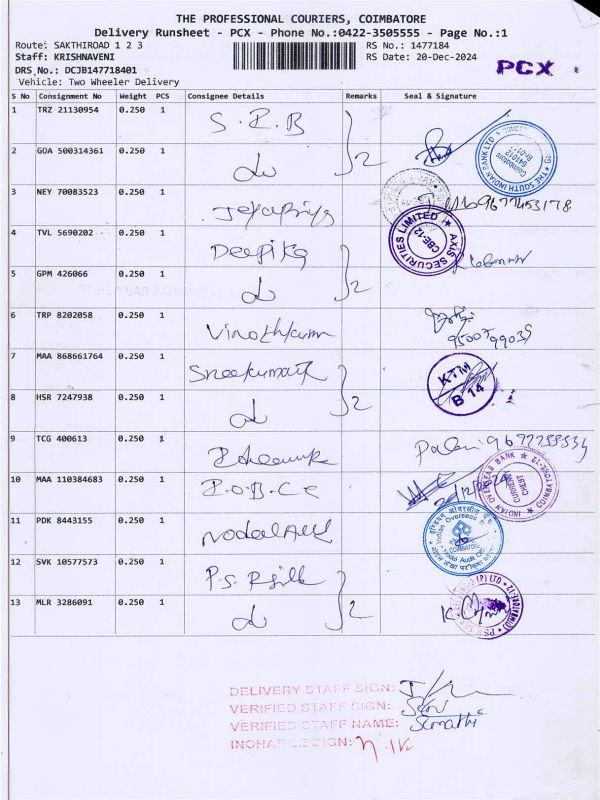 THE PROFESSIONAL COURIERS, COIMBATORE
Delivery Runsheet - PCX - Phone No.:0422-3505555 - Page No.:1
Route: SAKTHIROAD 1 2 3 RS No.: 1477184
Staff: KRISHNAVENI RS Date: 20-Dec-2024
DRS No.: DCJB147718401 PCX
Vehicle: Two Wheeler Delivery
S No Consignment No Weight PCS Consignee Details Remarks Seal & Signature
1 TRZ 21130954 0.250 1 S.I.B
2 GOA 500314361 0.250 1 do 2
THE SOUTH INDIAN BANK LTD Coimbatore 641012
3 NEY 70083523 0.250 1 Jeyapriya 9677453178
4 TVL 5690202 0.250 1 Deepika
AXIS SECURITIES LIMITED CBE-12
5 GPM 426066 0.250 1 do 2
6 TRP 8202058 0.250 1 Vinothkumar
7 MAA 868661764 0.250 1 Sreekumar
KTM B 14
8 HSR 7247938 0.250 1 do 2
9 TCG 400613 0.250 1
10 MAA 110384683 0.250 1 I.O.B.C.C
INDIAN OVERSEAS BANK CURRENCY CHEST COIMBATORE-12
11 PDK 8443155 0.250 1 Nodal Aud
Indian Overseas COIMBATORE
12 SVK 10577573 0.250 1 P.S.R Silk
13 MLR 3286091 0.250 1 do 2
DELIVERY STAFF SIGN:
VERIFIED STAFF SIGN:
VERIFIED STAFF NAME: Sumathi
INCHARGE SIGN: